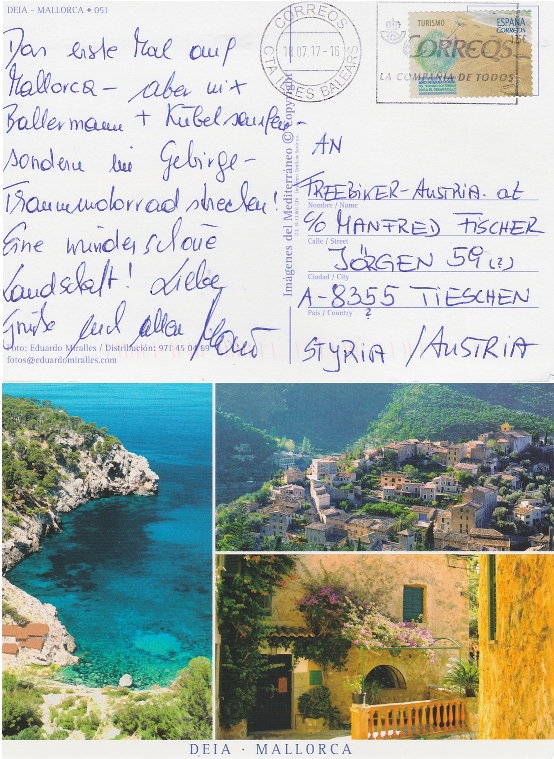 DEIA - MALLORCA ♦ 051
Das erste Mal auf
Mallorca - aber nix
Ballermann + Kübelsaufen -
sondern im Gebirge -
Traummotorradstrecken!
Eine wunderschöne
Landschaft! Liebe
Grüße Euch allen
Foto: Eduardo Miralles / Distribución: 971 45 04 69
fotos@eduardomiralles.com
Imágenes del Mediterráneo © Copyright
CORREOS
18.07.17 - 16
CTA ILLES BALEARS
TURISMO
ESPAÑA
CORREOS
CORREOS
LA COMPAÑIA DE TODOS
AN
FREEBIKER-AUSTRIA.at
Nombre / Name
c/o MANFRED FISCHER
Calle / Street
JÖRGEN 59 (?)
Ciudad / City
A-8355 TIESCHEN
País / Country
?
STYRIA / AUSTRIA
DEIA · MALLORCA